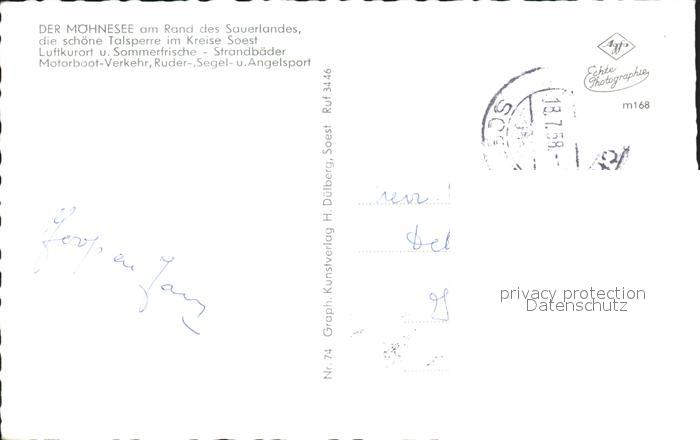 DER MÖHNESEE am Rand des Sauerlandes,
die schöne Talsperre im Kreise Soest
Luftkurort u. Sommerfrische - Strandbäder
Motorboot-Verkehr, Ruder-, Segel- u. Angelsport
Agfa
Echte
Photographie
m168
18.7.58.-
Nr. 74 Graph. Kunstverlag H. Dülberg, Soest Ruf 3446
privacy protection
Datenschutz